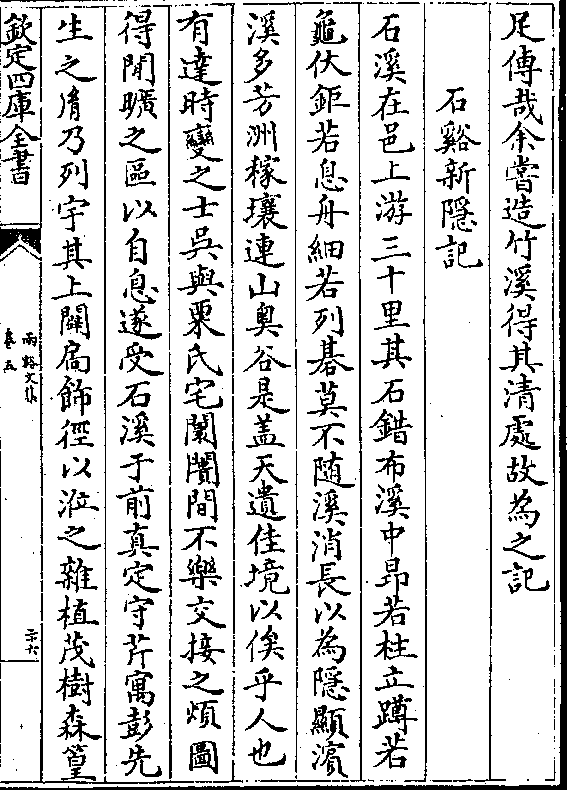 足傳哉余嘗造竹溪得其清處故為之記
石谿新隱記
石溪在邑上游三十里其石錯布溪中昂若柱立蹲若
龜伏鉅若息舟細若列碁莫不隨溪消長以為隱顯濱
溪多芳洲稼壤連山奥谷是盖天遺佳境以俟乎人也
有達時變之士吳與粟氏宅闤闠間不樂交接之煩圖
得閒曠之區以自息遂受石溪于前真定守芹寓彭先
生之脩乃列宇其上闢扄飾徑以涖之雜植茂樹森篁
欽定四庫全書
兩谿文集
卷五
二十六